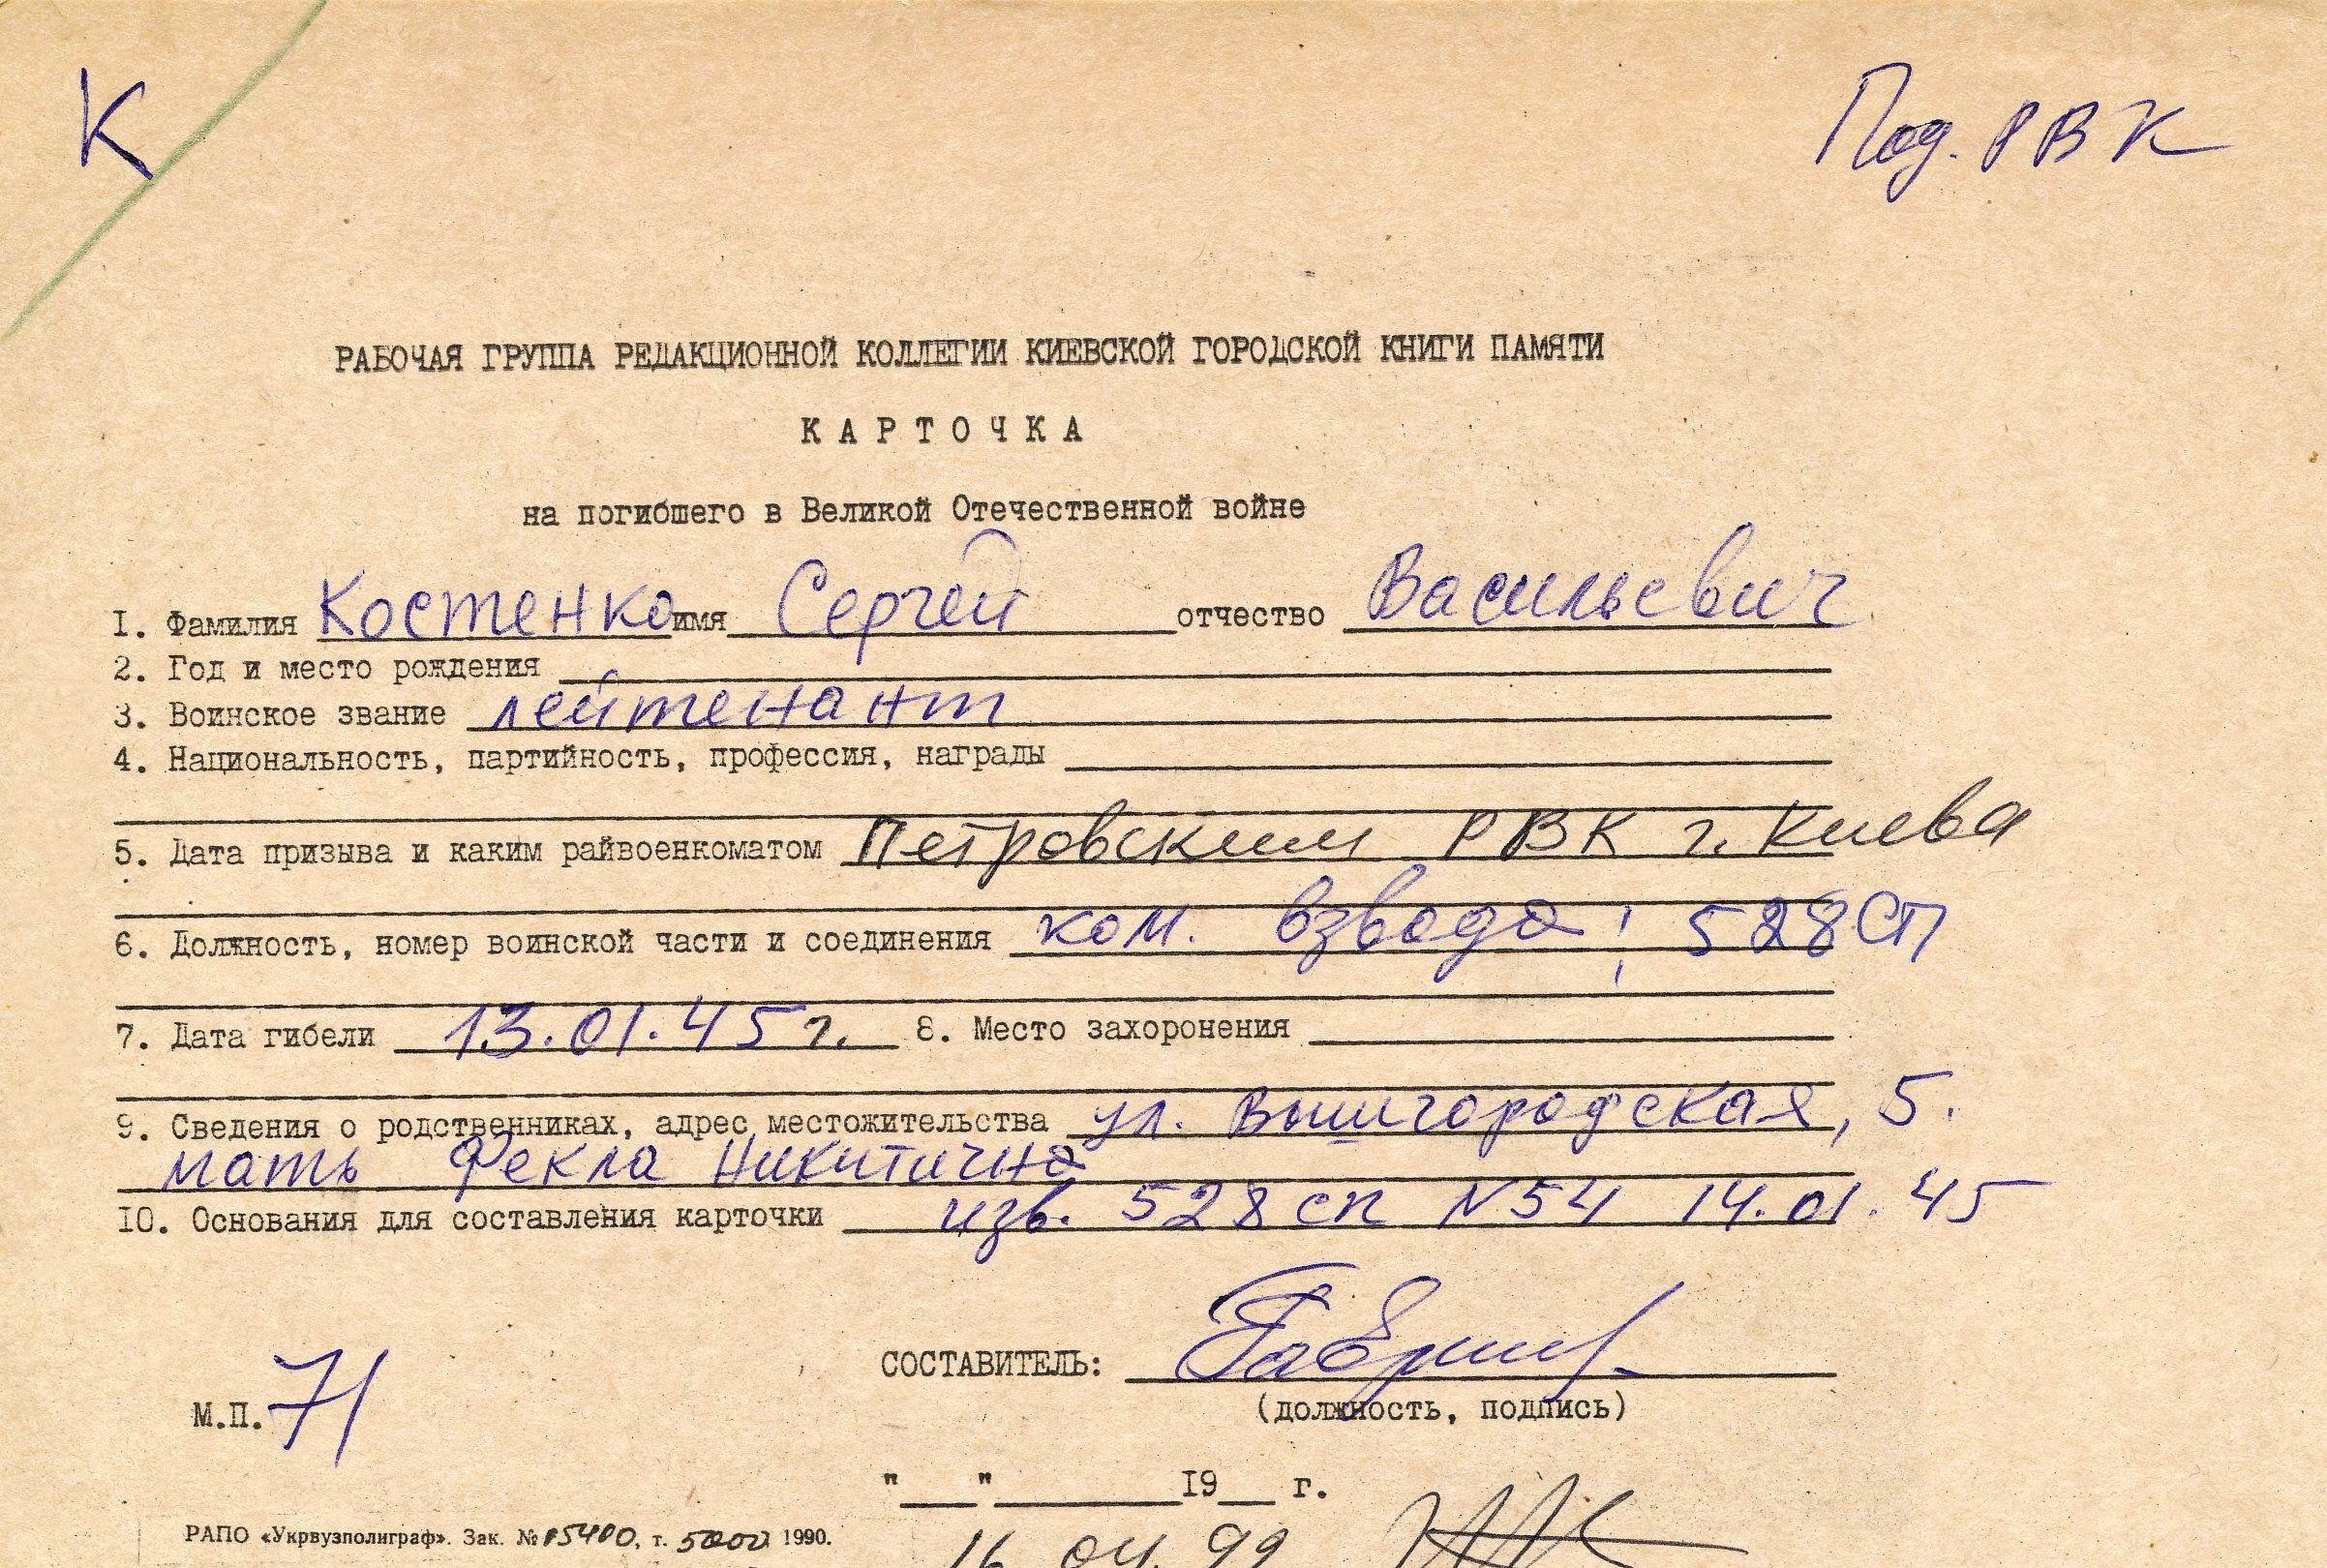 К
Под. РВК
РАБОЧАЯ ГРУППА РЕДАКЦИОННОЙ КОЛЛЕГИИ КИЕВСКОЙ ГОРОДСКОЙ КНИГИ ПАМЯТИ
КАРТОЧКА
на погибшего в Великой Отечественной войне
1. Фамилия Костенко имя Сергей отчество Васильевич
2. Год и место рождения
3. Воинское звание лейтенант
4. Национальность, партийность, профессия, награды
5. Дата призыва и каким райвоенкоматом Петровским РВК г. Киева
6. Должность, номер воинской части и соединения ком. взвода; 528СП
7. Дата гибели 13.01.45 г. 8. Место захоронения
9. Сведения о родственниках, адрес местожительства ул. Вышгородская, 5.
мать Фекла Никитична
10. Основания для составления карточки изв. 528 сп N54 14.01.45
СОСТАВИТЕЛЬ:
М.П. 71
(должность, подпись)
"___"_______19__ г.
16 04. 99
РАПО «Укрвузполиграф». Зак. № 5400, т. 5000 1990.